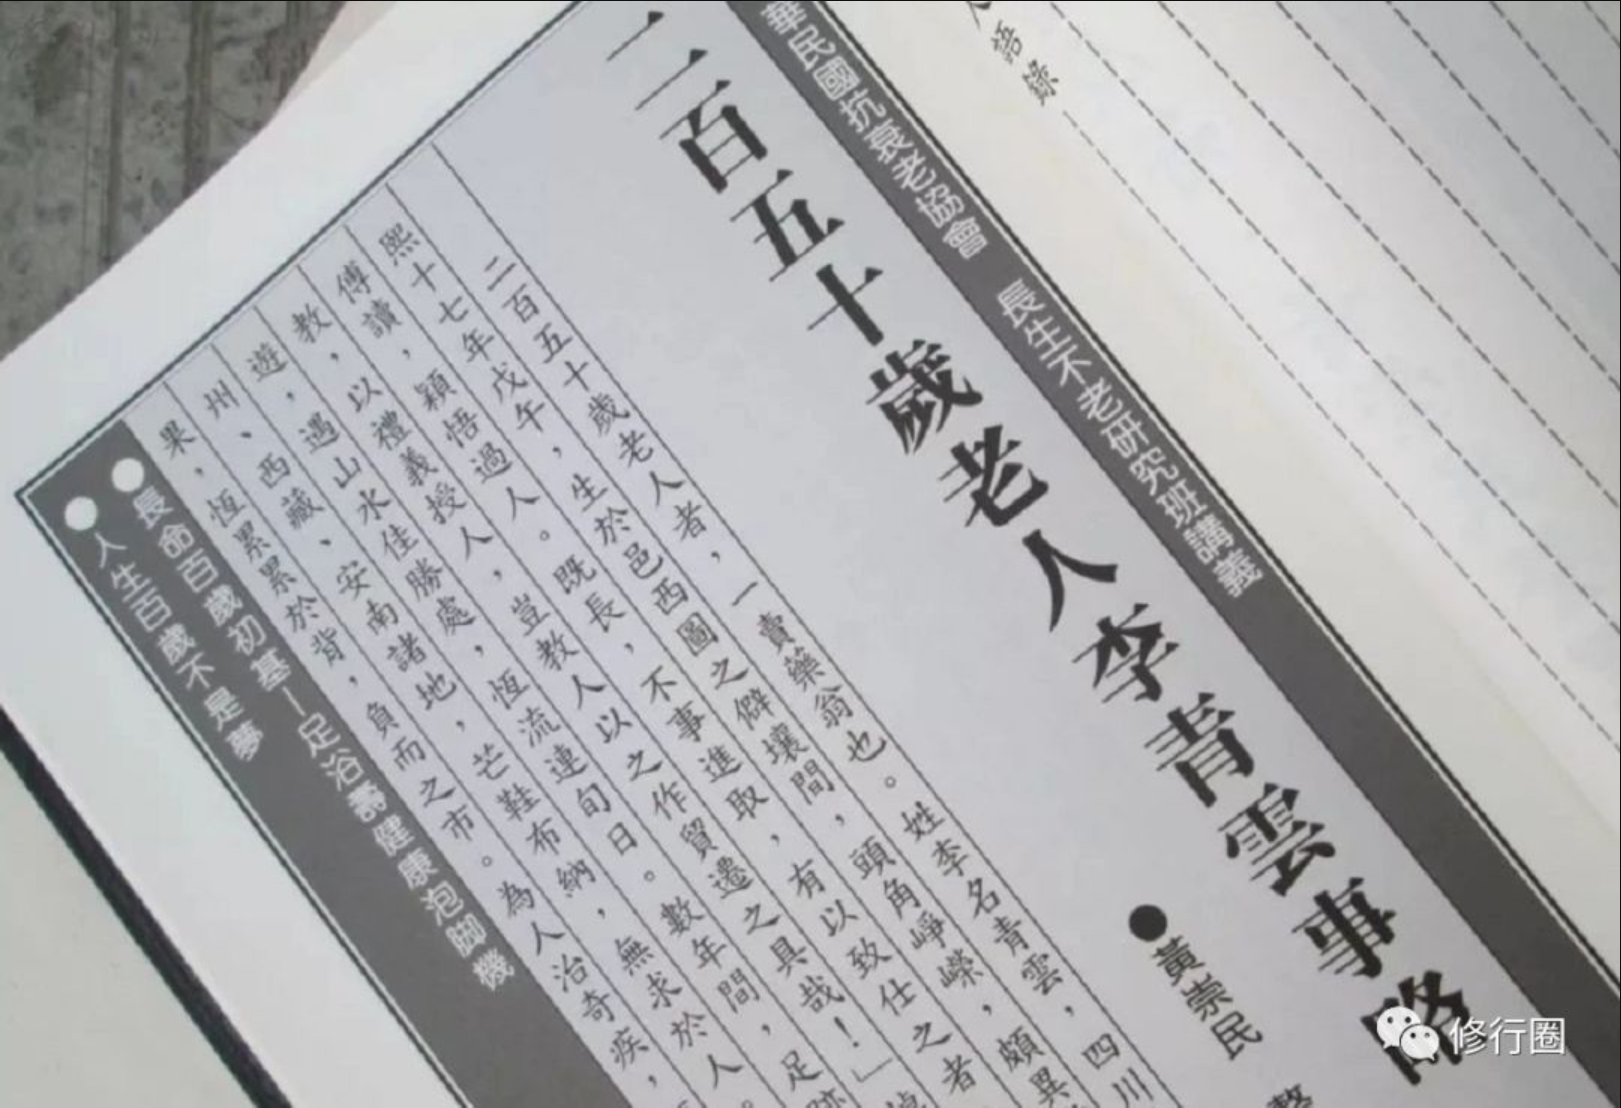 人語錄
華民國抗衰老協會 長生不老研究班講義
二百五十歲老人李青雲事略
●黃崇民 整
二百五十歲老人者，一賣藥翁也。姓李名青雲，四川
熙十七年戊午，生於邑西圖之僻壤間，頭角崢嶸，頗異
傅讀，穎悟過人。既長，不事進取，有以致仕之者
教，以禮義授人，豈教人以之作貿遷之具哉！」
遊，遇山水佳勝處，恆流連旬日。數年間，足跡
州、西藏、安南諸地，芒鞋布納，無求於人。
果，恆累累於背，負而之市。為人治奇疾，
●長命百歲初基—足浴壽健康泡腳機
●人生百歲不是夢
修行圈